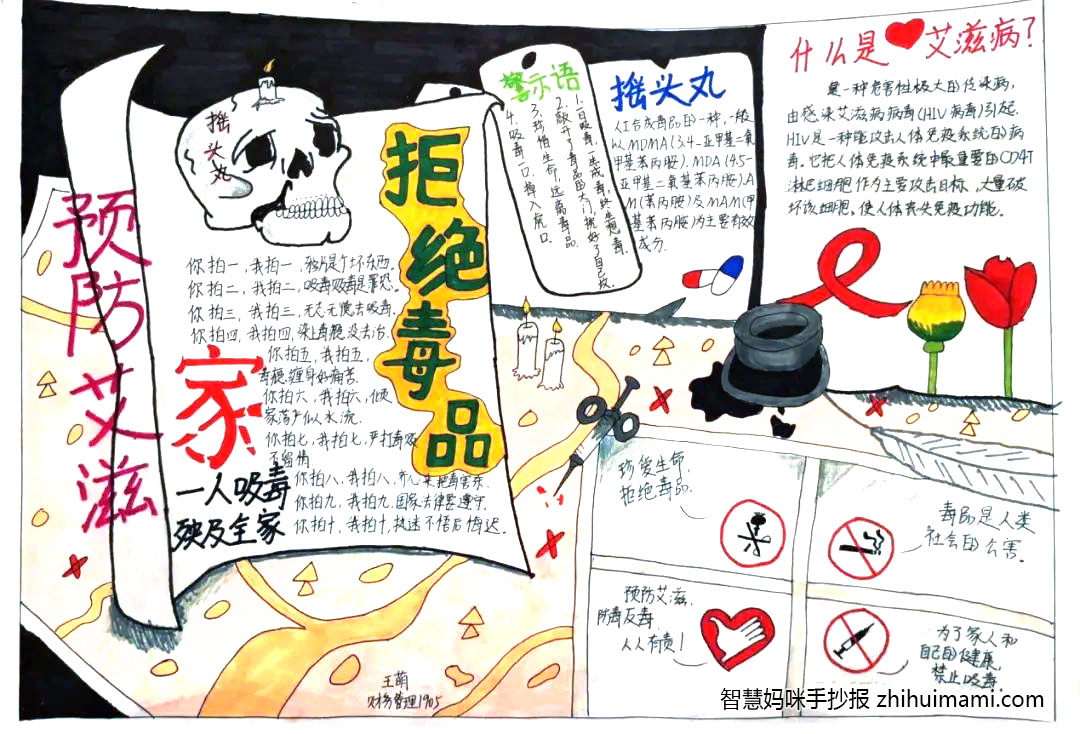 预防艾滋
摇头丸
拒绝毒品
你拍一，我拍一，鸦片是个坏东西。
你拍二，我拍二，吸毒贩毒是罪恶。
你拍三，我拍三，无忘无惧去吸毒，
你拍四，我拍四，染上毒瘾没法治。
你拍五，我拍五，
毒瘾缠身好痛苦。
你拍六，我拍六，倾
家荡产似水流。
你拍七，我拍七，严打毒贩
不留情
你拍八，我拍八，齐心来把毒害杀，
你拍九，我拍九，国家法律要遵守。
你拍十，我拍十，执迷不悟后悔迟。
家
一人吸毒
殃及全家
警示语
1.一日吸毒，
2.敲开了毒品的大门，挖好了自己坟。
3.珍惜生命，远离毒品。
4.吸毒一口，掉入虎口。
摇头丸
人工合成毒品的一种，一般
以MDMA(3,4-亚甲基二氧
甲基苯丙胺)、MDA(4.5-
亚甲基二氧基苯丙胺)、A
M(苯丙胺)及MAM(甲
基苯丙胺)为主要有效
成分.
什么是艾滋病？
是一种危害性极大的传染病，
由感染艾滋病病毒(HIV病毒)引起.
HIV是一种能攻击人体免疫系统的病
毒。它把人体免疫系统中最重要的CD4T
淋巴细胞作为主要攻击目标，大量破
坏该细胞，使人体丧失免疫功能。
珍爱生命，
拒绝毒品.
毒品是人类
社会的公害.
预防艾滋，
防毒反毒
人人有责！
为了家人和
自己的健康，
禁止吸毒.
王萌
财务管理1905
智慧妈咪手抄报 zhihuimami.com